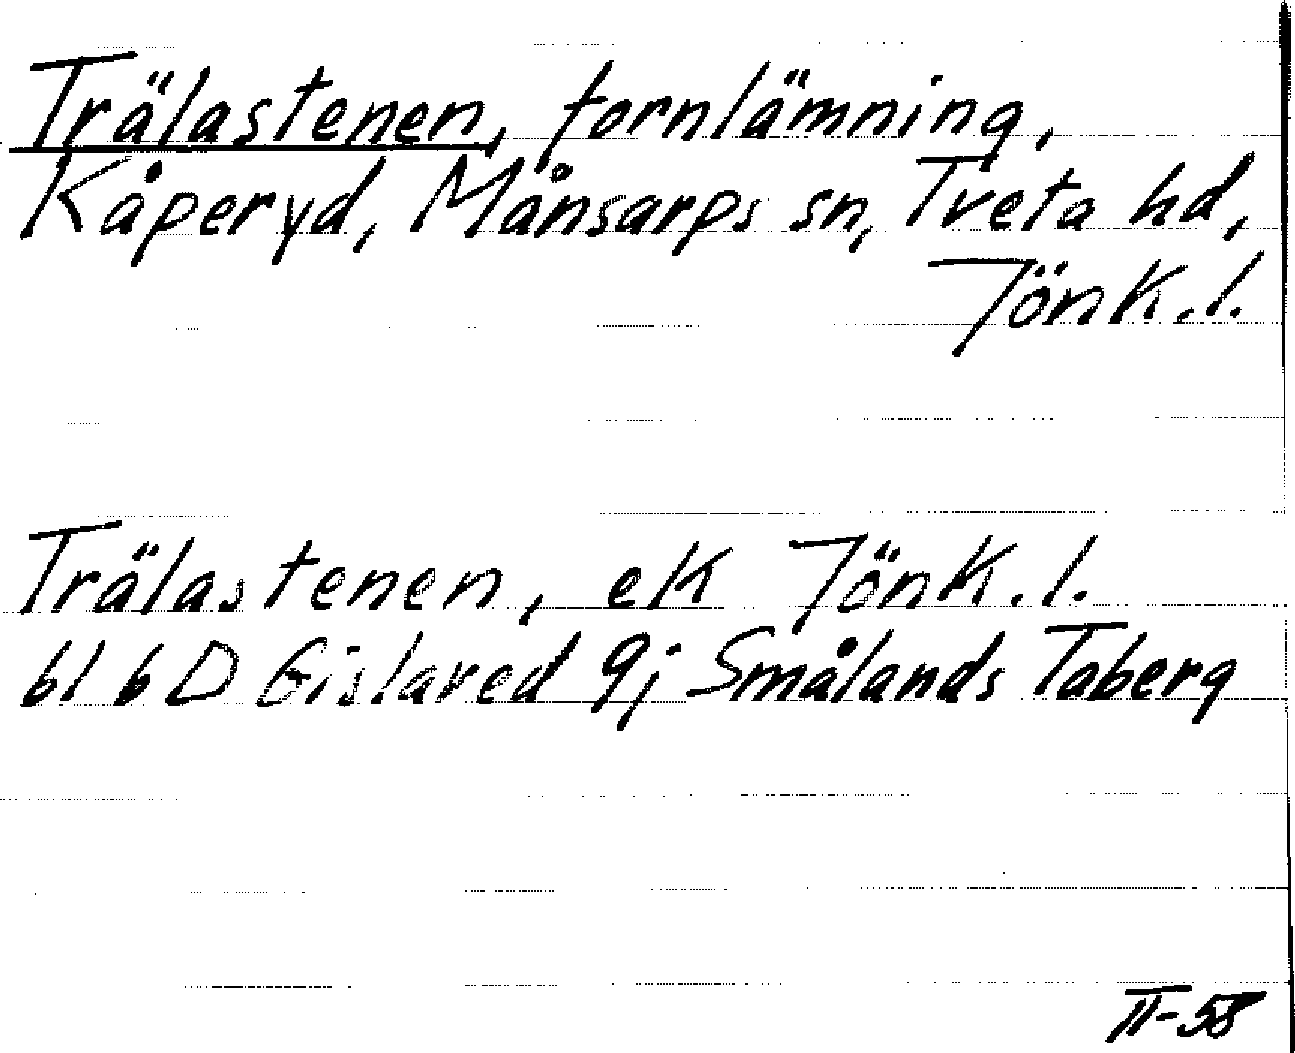 Trälastenen, fornlämning,
Kåperyd, Månsarps sn, Tveta hd,
Jönk.l.
Trälastenen, ek Jönk.l.
bl 6 D Gislaved 9j Smålands Taberg
II-58